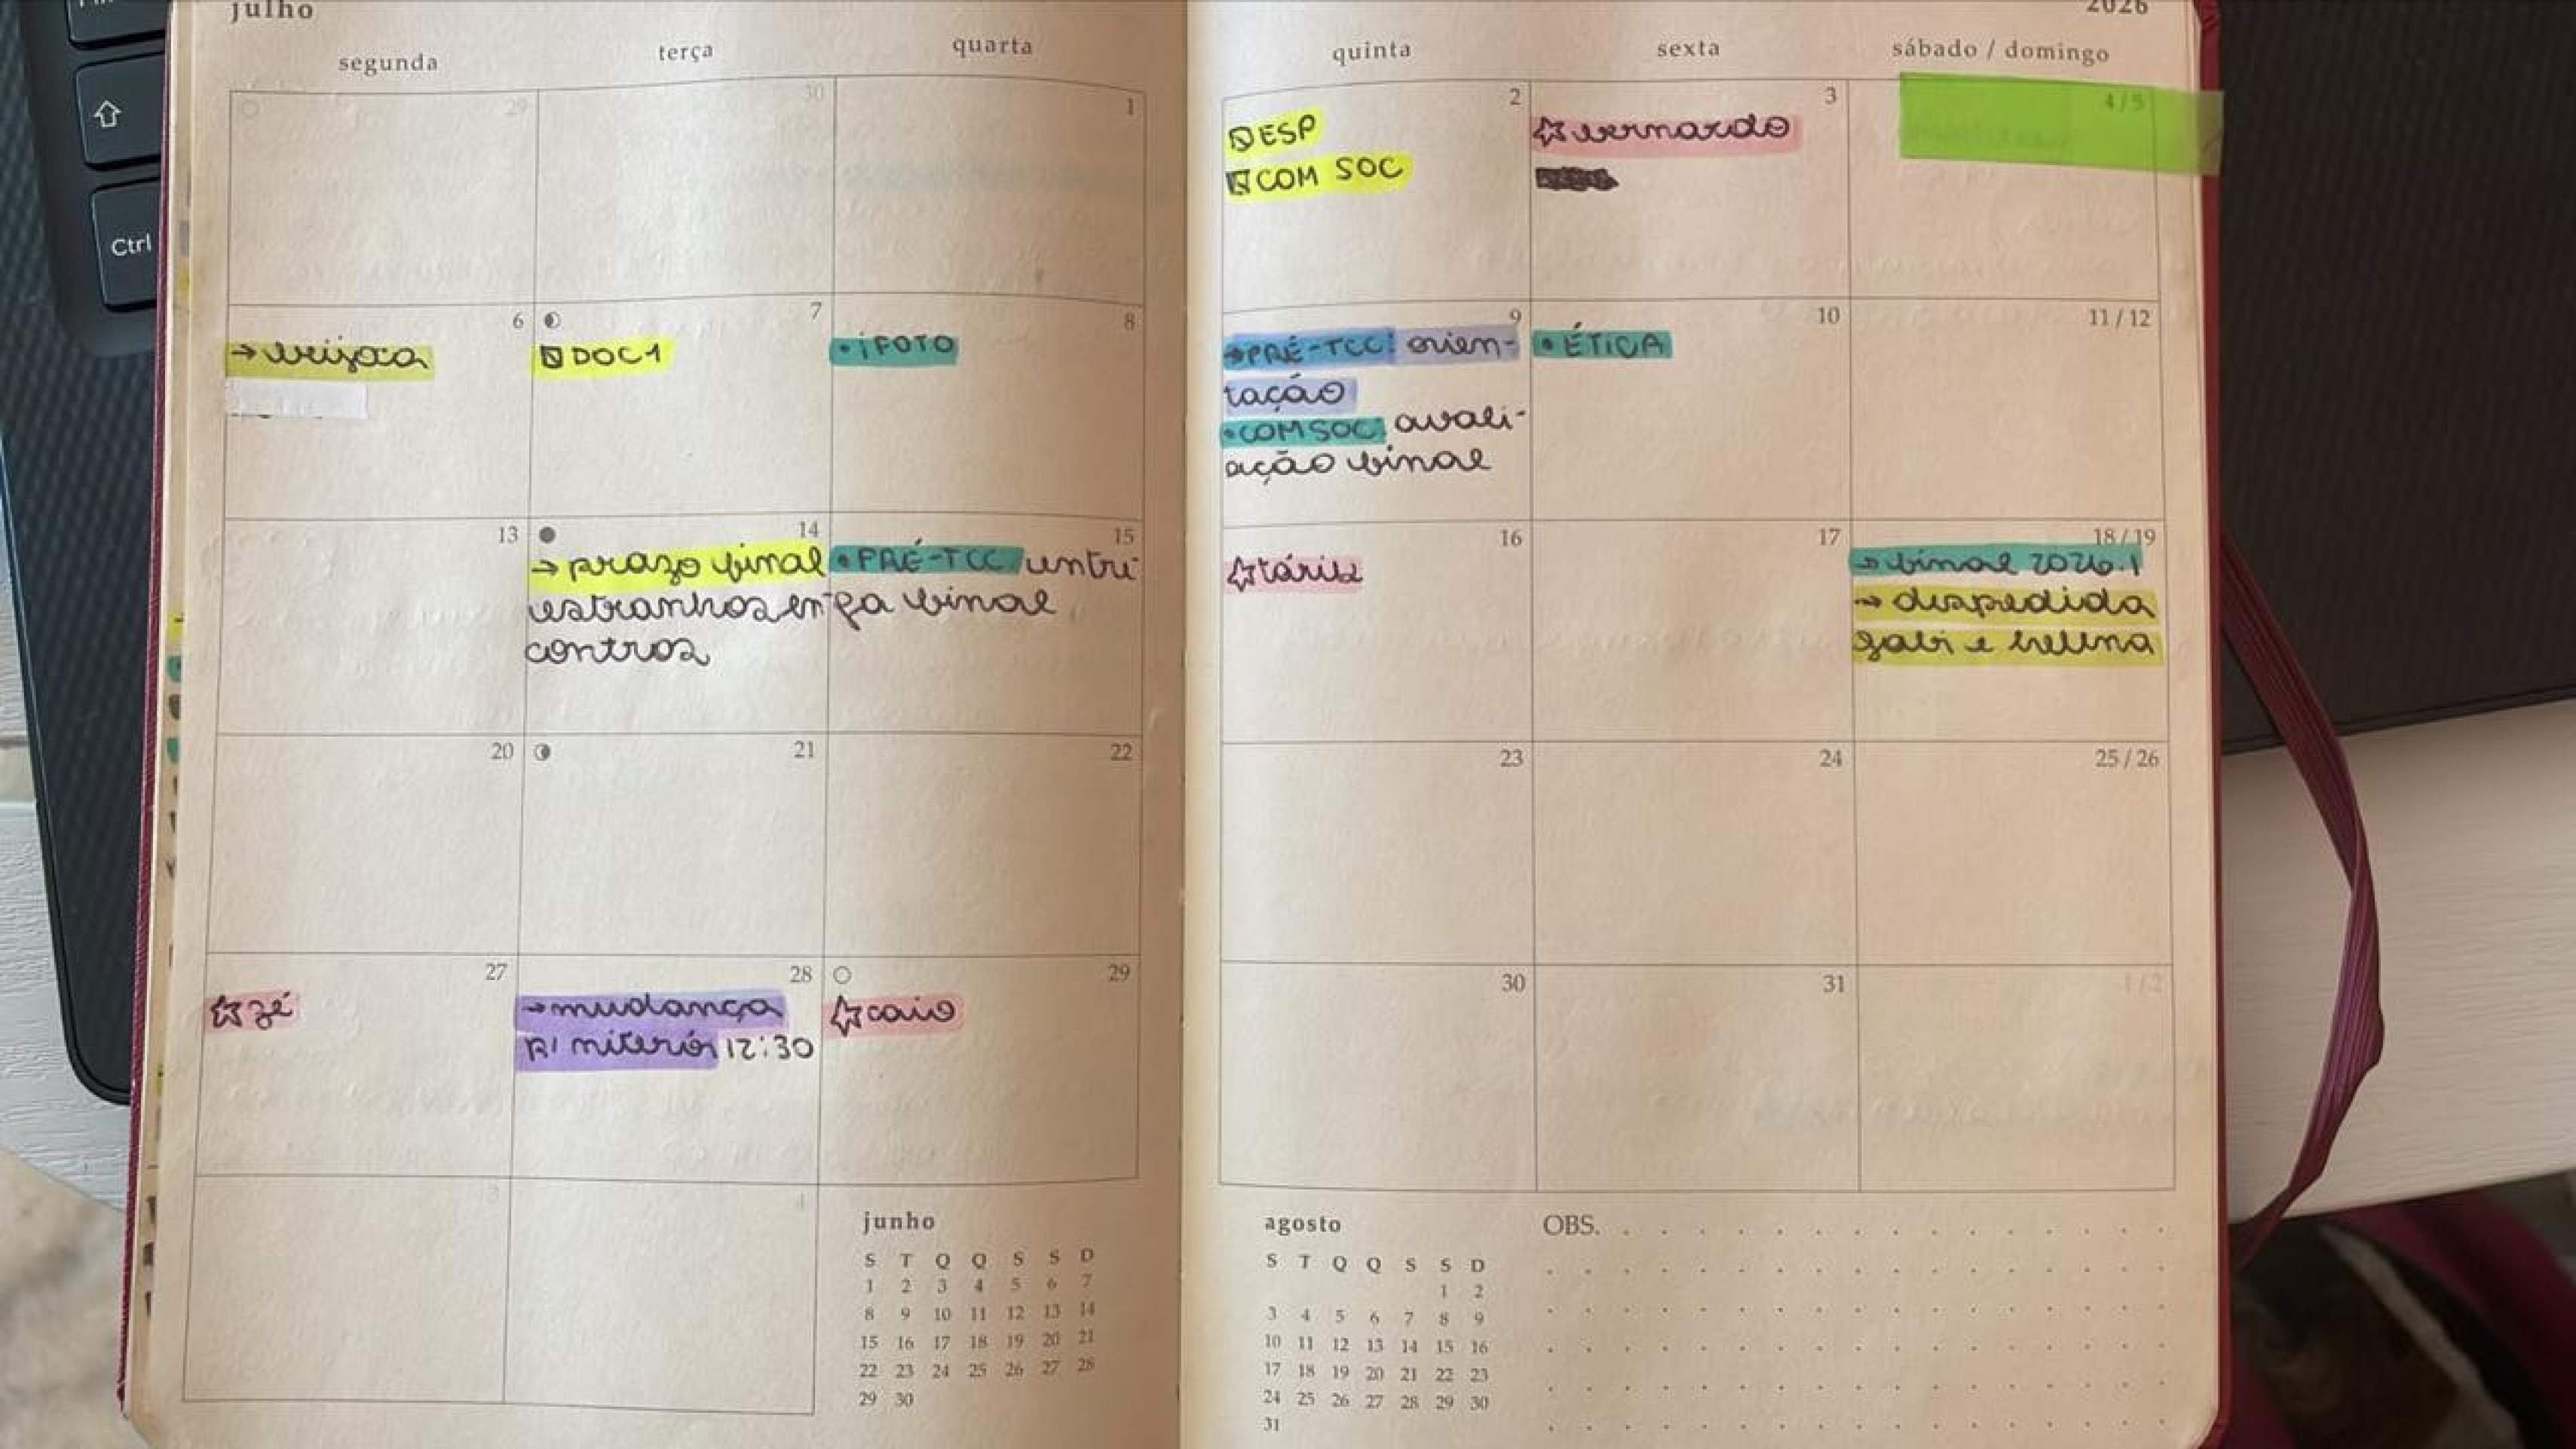 julho
2026
segunda
terça
quarta
quinta
sexta
sábado / domingo
29
30
1
2
ESP
COM SOC
3
bernardo
4/5
6
7
DOC1
8
• iFOTO
9
→PRÉ-TCC: orien-
tação
• COMSOC: avali-
ação final
10
• ÉTICA
11 / 12
13
14
→ prazo final
estranhos en-
contros
15
• PRÉ-TCC entre
ga final
16
17
18 / 19
→ final 2026.1
→ despedida
gabi e helena
20
21
22
23
24
25 / 26
27
zé
28
→mudança
P/ niterói 12:30
29
caio
30
31
1/2
3
4
junho
S T Q Q S S D
1 2 3 4 5 6 7
8 9 10 11 12 13 14
15 16 17 18 19 20 21
22 23 24 25 26 27 28
29 30
agosto
S T Q Q S S D
1 2
3 4 5 6 7 8 9
10 11 12 13 14 15 16
17 18 19 20 21 22 23
24 25 26 27 28 29 30
31
OBS.
Ctrl